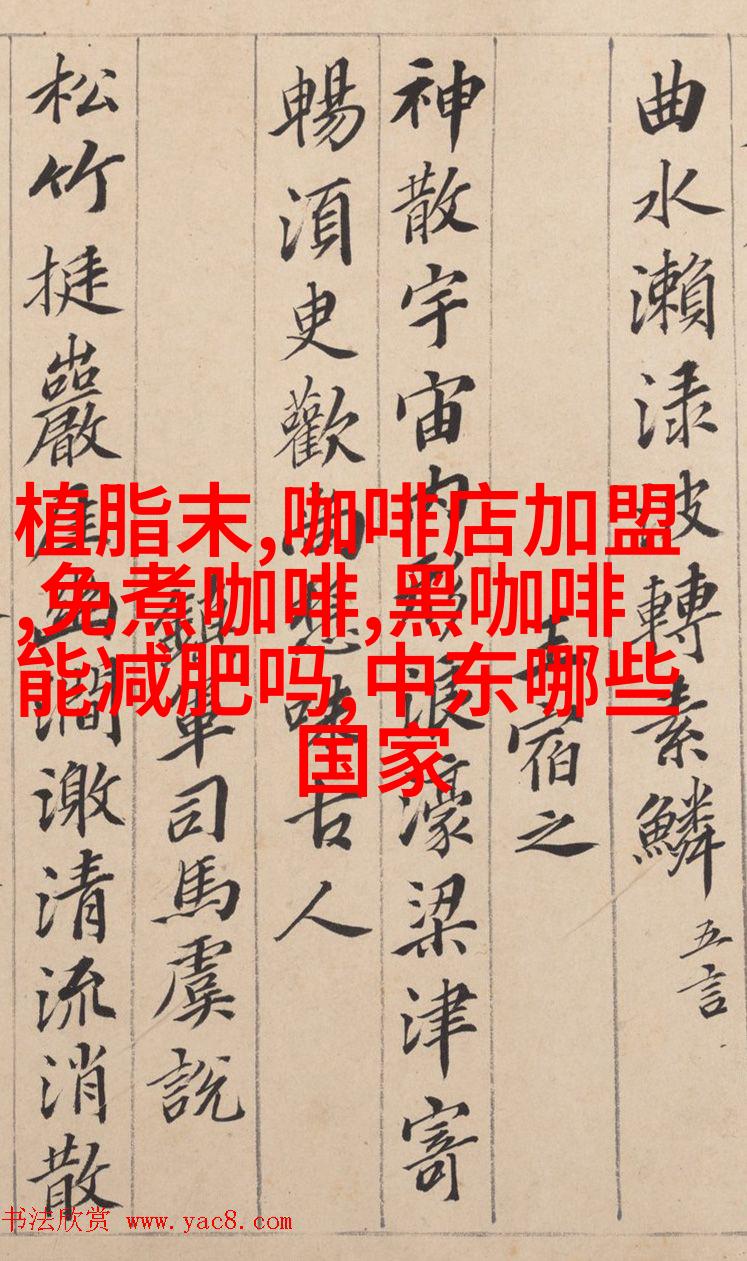 曲水瀨渌波轉素鱗 五言
王宿之
神散宇宙内形浪濠梁津寄
暢湏臾歡尚想味古人
鎮軍司馬虞說
松竹挺巖崖幽澗激清流消散
植脂末,咖啡店加盟
,免煮咖啡,黑咖啡
能减肥吗,中东哪些
国家
书法欣赏 www.yac8.com